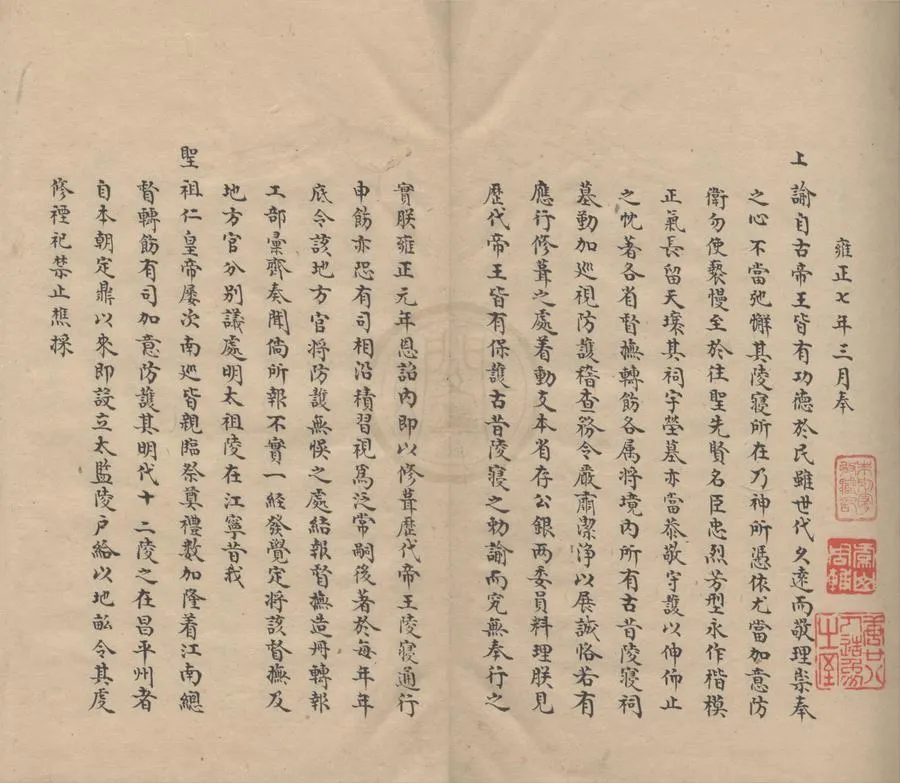 雍正七年三月奉
上諭自古帝王皆有功德於民雖世代久遠而敬理崇奉
之心不當弛懈其陵寢所在乃神所憑依尤當加意防
衛勿使褻慢至於往聖先賢名臣忠烈芳型永作楷模
正氣長留天壤其祠宇塋墓亦當恭敬守護以伸仰止
之忱著各省督撫轉飭各属将境內所有古昔陵寢祠
墓勤加巡視防護稽查務令嚴肅潔淨以展誠恪若有
應行修葺之處着動支本省存公銀兩委員料理朕見
歷代帝王皆有保護古昔陵寢之勅諭而究無奉行之
實朕雍正元年恩詔內即以修葺歷代帝王陵寢通行
申飭亦恐有司相沿積習視為泛常嗣後著於每年年
底令該地方官将防護無悞之處結報督撫造冊轉報
工部彙齊奏聞倘所報不實一經發覺定将該督撫及
地方官分别議處明太祖陵在江寧昔我
聖祖仁皇帝屡次南巡皆親臨祭奠禮數加隆着江南總
督轉飭有司加意防護其明代十二陵之在昌平州者
自本朝定鼎以來即設立太監陵户給以地畝令其虔
修禋祀禁止樵採